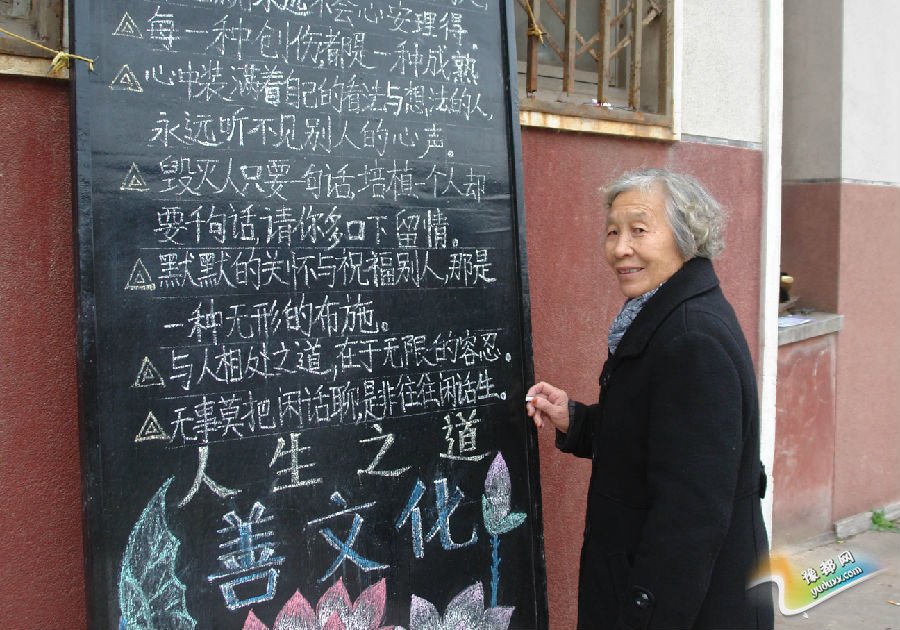 不会心安理得。
每一种创伤都是一种成熟
心中装满着自己的看法与想法的人,
永远听不见别人的心声。
毁灭人只要一句话,培植一个人却
要千句话,请你多口下留情。
默默的关怀与祝福别人,那是
一种无形的布施。
与人相处之道,在于无限的容忍。
无事莫把闲话聊,是非往往闲话生。
人生之道
善文化
豫都网
yuduxx.com